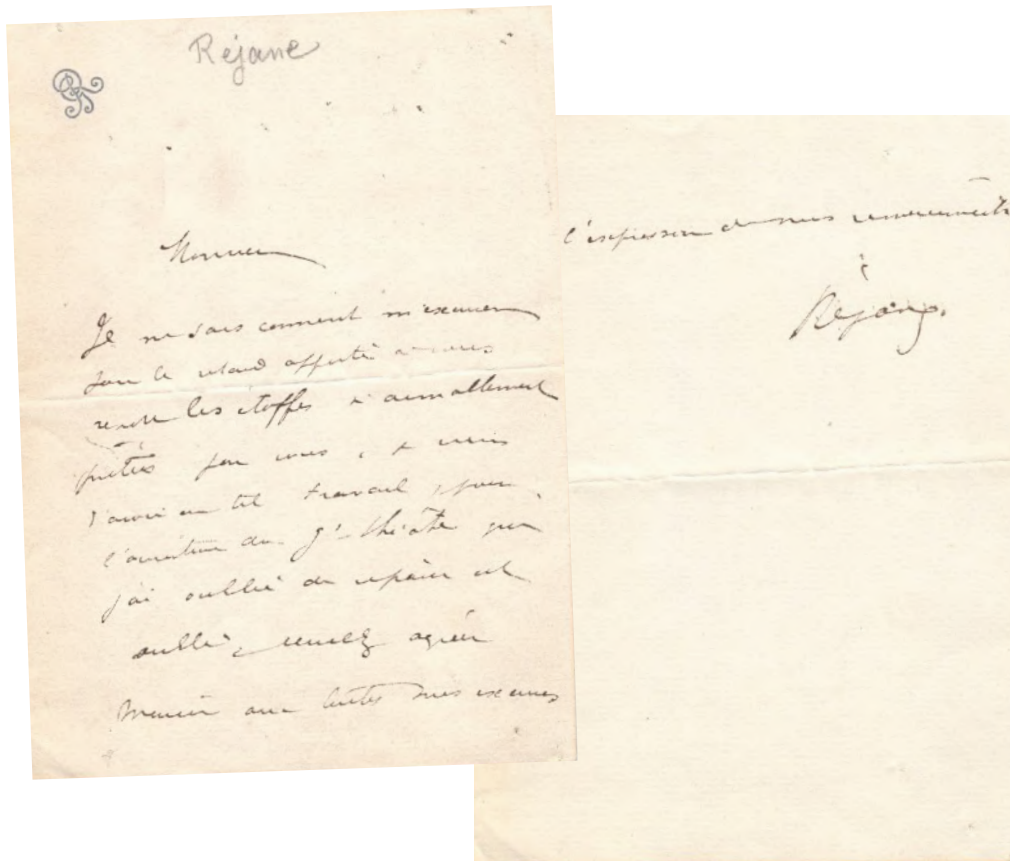 Réjane
Monsieur
Je ne sais comment m'excuser
pour le retard apporté à vous
rendre les étoffes si aimablement
prêtées par vous,
j'avais un tel travail, pour
l'ouverture du Gd théâtre que
j'ai oublié de réparer cet
oubli, veuillez agréer
Monsieur avec toutes mes excuses
l'expression de mes remerciements
Réjane.